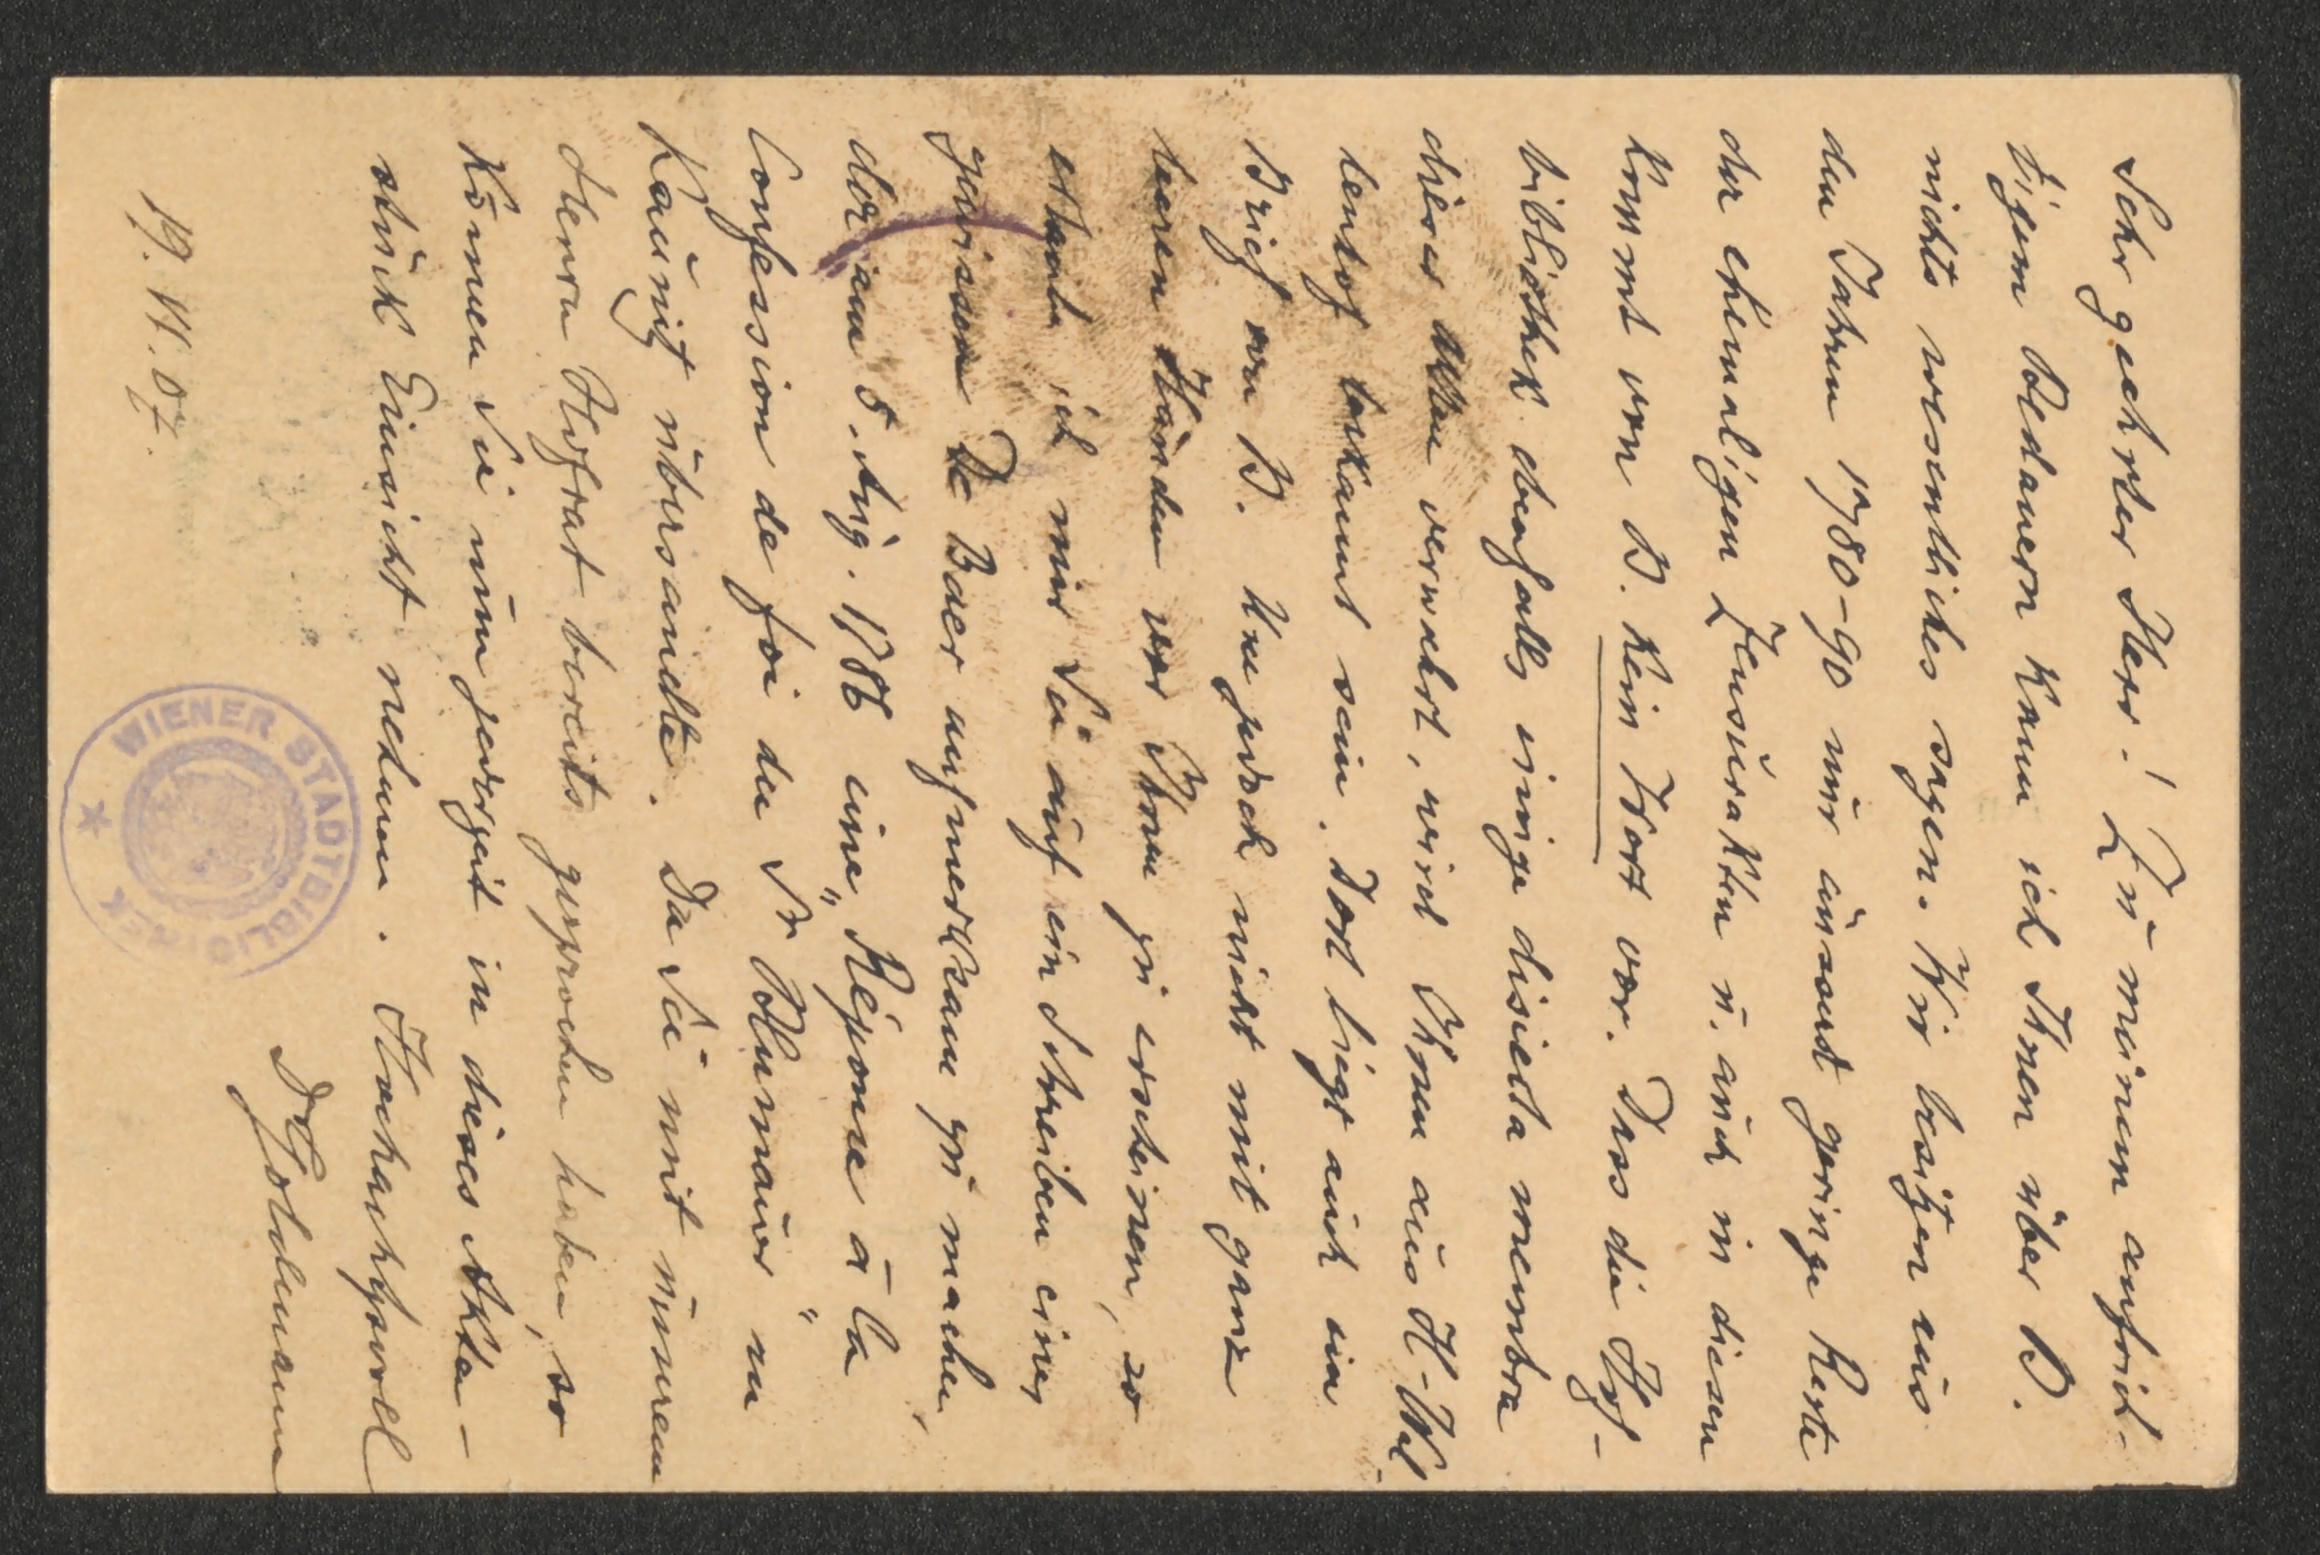 Sehr geehrter Herr! Zu meinem aufrich-
tigem Bedauern kann ich Ihnen über B.
nichts wesentliches sagen. Wir besitzen aus
den Jahren 1780-90 nur äusserst geringe Reste
der ehemaligen Zensurakten u. auch in diesen
kommt von B. kein Wort vor. Dass die Hof-
bibliothek diesfalls einige disiecta membra
dieser Akten verwahrt, wird Ihnen aus
bekannt sein. Dort liegt auch ein
Brief von B. Um jedoch nicht mit ganz
leeren Händen vor Ihnen zu erscheinen, so
erlaube ich mir Sie auf ein Schreiben eines
gewissen De Baer aufmerksam zu machen,
der am 8. Aug. 1786 eine „Réponse à la
Confession de foi du Sr Blumauer" an
Kaunitz übersandte. Da Sie mit unserem
Herrn Hofrat bereits gesprochen haben, so
können Sie nun jederzeit in dieses Akten-
stück Einsicht nehmen. Hochachtgsvoll
Dr Goldmann
19. VI. 07.
WIENER STADTBIBLIOTHEK